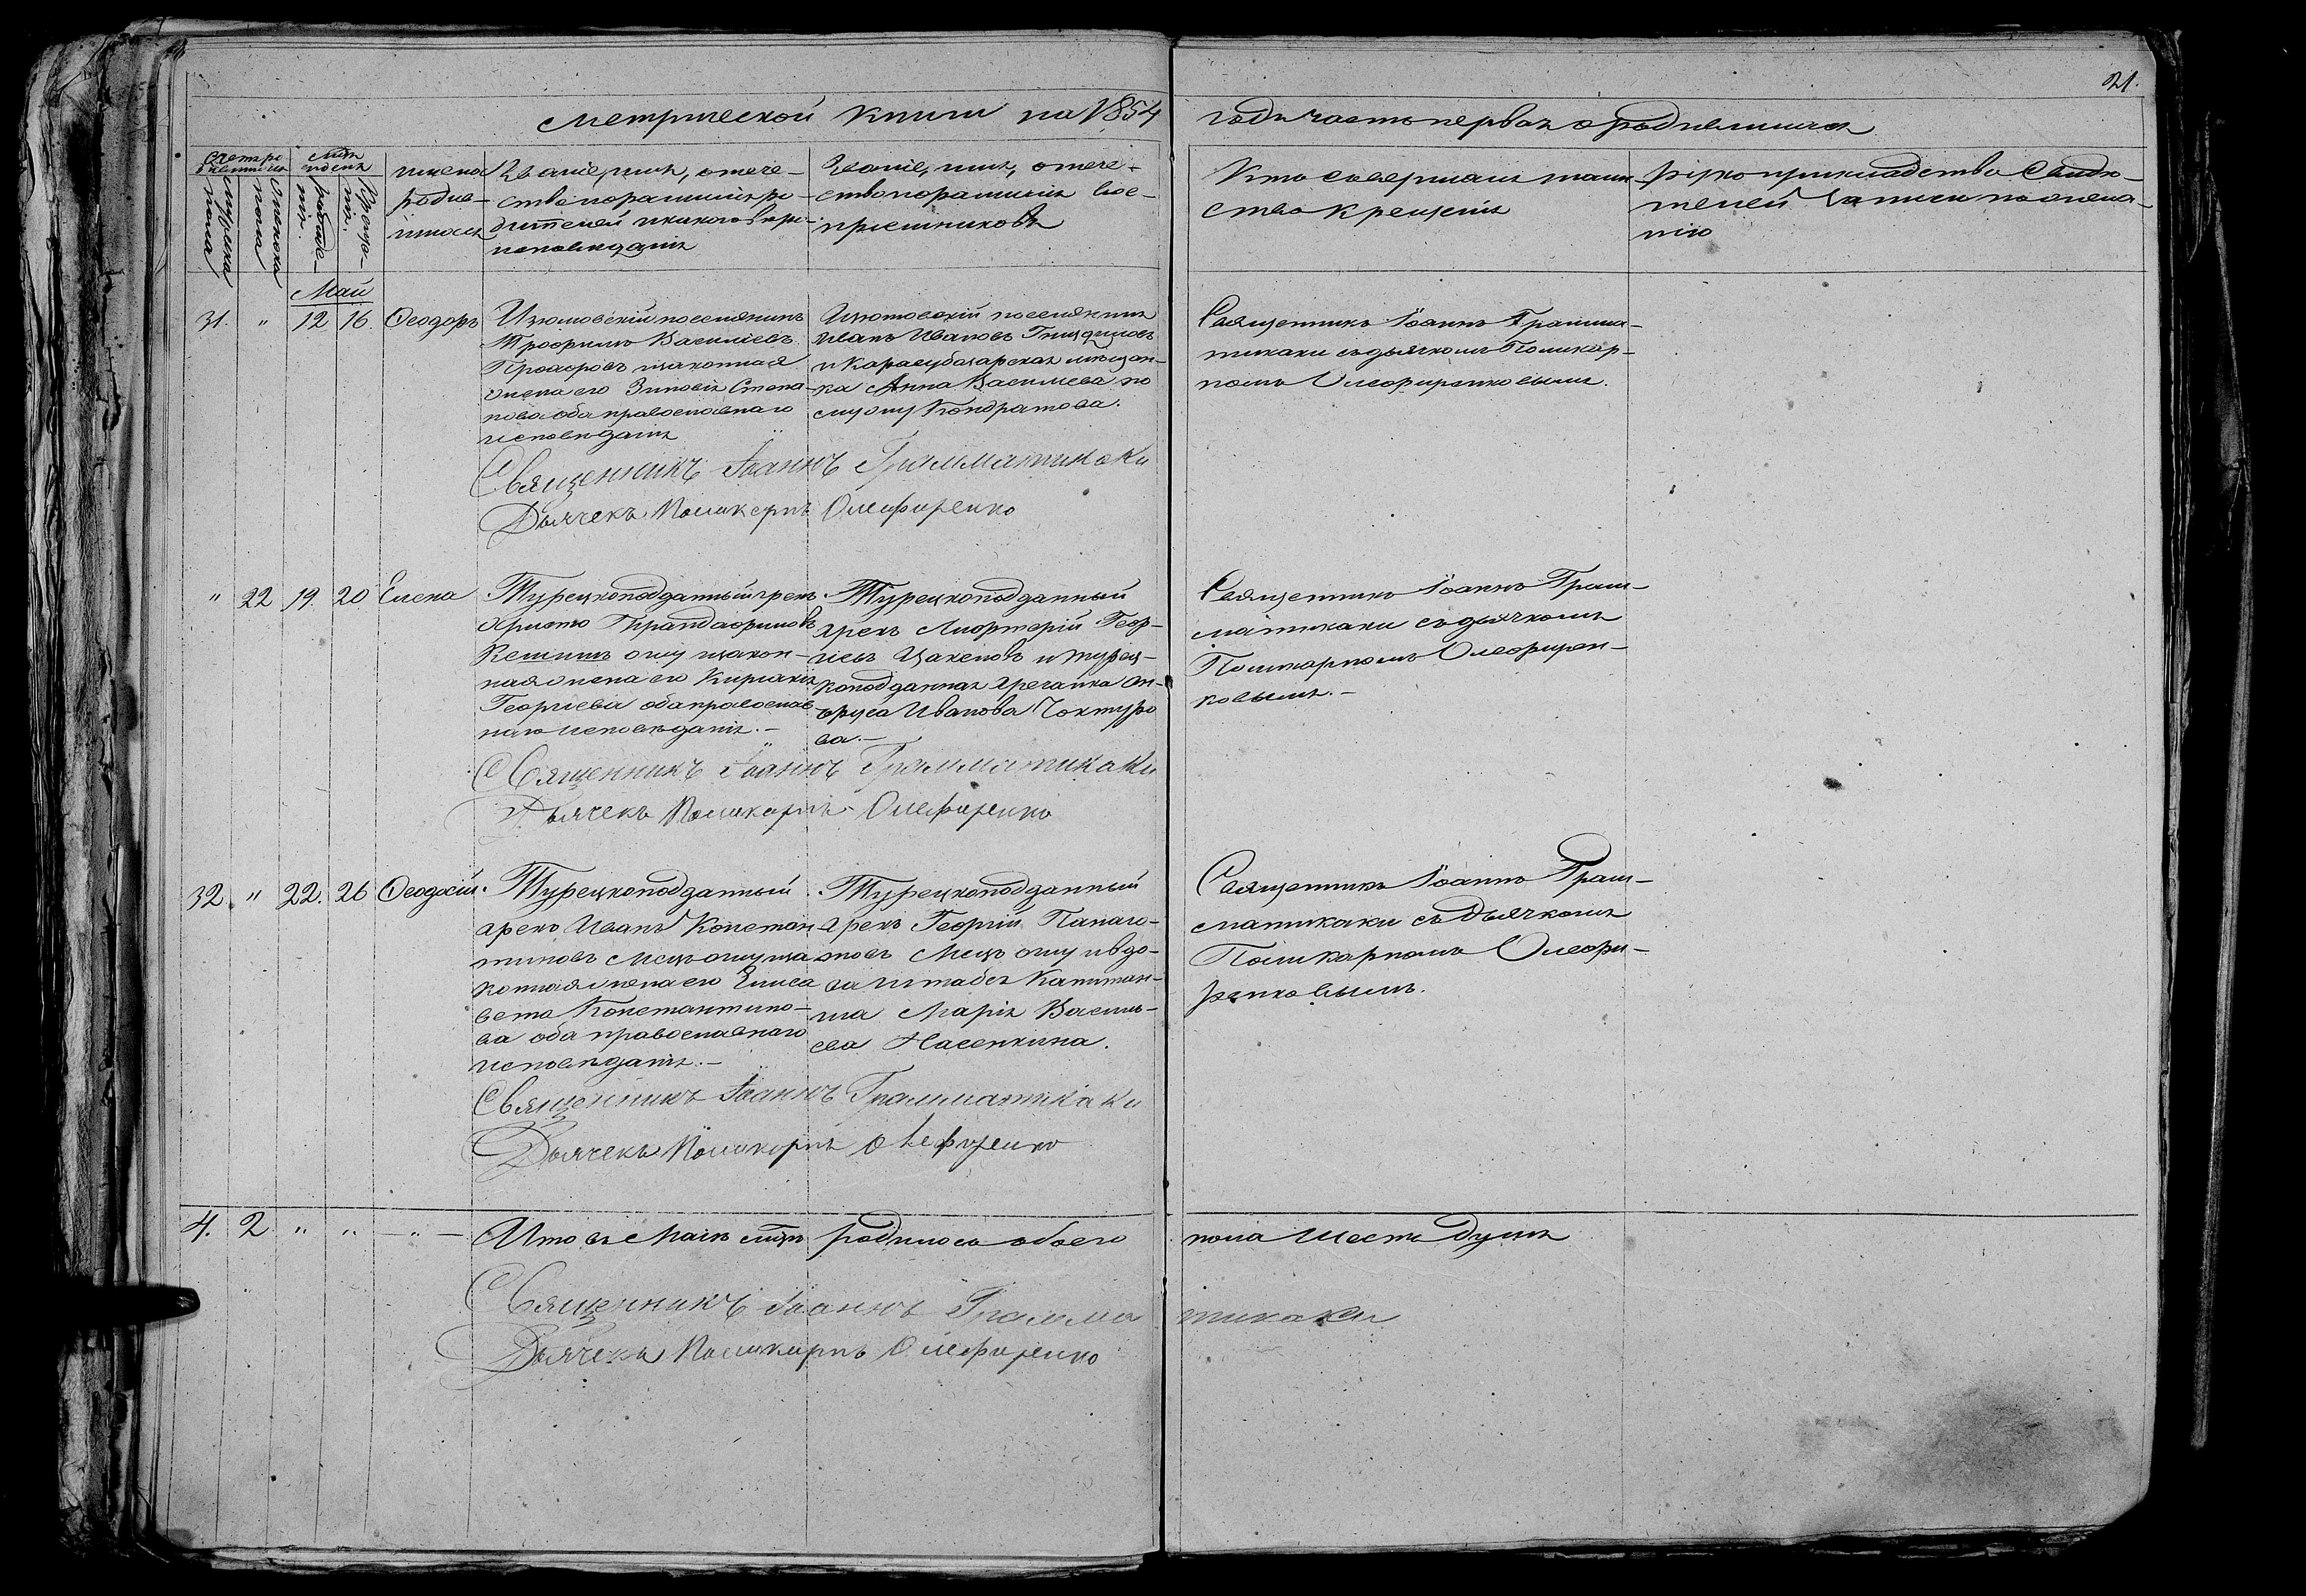 21.
Метрической книги на 1854 годъ часть первая о родившихся
Счетъ ро
дившихся
Мужеска
пола
Женска
пола
Мѣц.
и день
рожде-
нія.
Креще-
нія.
Имена
родив-
шихся
Званіе, имя, отече-
ство и фамилія ро-
дителей и какого вѣро-
исповѣданія
Званіе, имя, отече-
ство и фамилія вос-
пріемниковъ
Кто совершалъ таин-
ство крещенія
Рукоприкладство свидѣ-
телей записи по жела-
нію
Май
31. " 12 16. Ѳеодоръ
Изюмовскій поселянинъ
Трофимъ Василіевъ
Прохоровъ и законная
жена его Зиновія Степа-
нова оба православнаго
исповѣданія
Изюмовскій поселянинъ
Иванъ Ивановъ
и Карасубазарская мѣщан-
ка Анна Василева по
мужу Кондратова.
Священникъ Іоаннъ Грамма-
тикаки съ дьячкомъ Поликар-
помъ Олефиренковымъ.
Священникъ Іоаннъ Грамматикаки
Дьячекъ Поликарпъ Олефиренко
" 22 19. 20 Елена
Турецкоподданный грекъ
Христо
и закон-
ная жена его Киріаки
Георгіева оба православ-
наго исповѣданія.-
Турецкоподданный
грекъ Геор-
гіевъ и турец-
коподданная гречанка
Иванова Чоктуро
ва.-
Священникъ Іоаннъ Грам-
матикаки съ дьячкомъ
Поликарпомъ Олефирен-
ковымъ.-
Священникъ Іоаннъ Грамматикаки
Дьячекъ Поликарпъ Олефиренко
32. " 22. 26 Ѳеодосій.
Турецкоподданный
грекъ Иванъ Констан
тиновъ и за
конная жена его Елиса
вета Константино-
ва оба православнаго
исповѣданія.-
Турецкоподданный
грекъ Георгій Панаго-
товъ и вдо-
ва штабсъ Капитан-
ша Марія Василь-
ева Насенкина.
Священникъ Іоаннъ Грам-
матикаки съ дьячкомъ
Поликарпомъ Олефи-
ренковымъ.
Священникъ Іоаннъ Грамматикаки
Дьячекъ Поликарпъ Олефиренко
4. 2 " " - " - Итого въ Маѣ мѣцѣ родилось обоего пола шесть душъ
Священникъ Іоаннъ Грамматикаки
Дьячекъ Поликарпъ Олефиренко